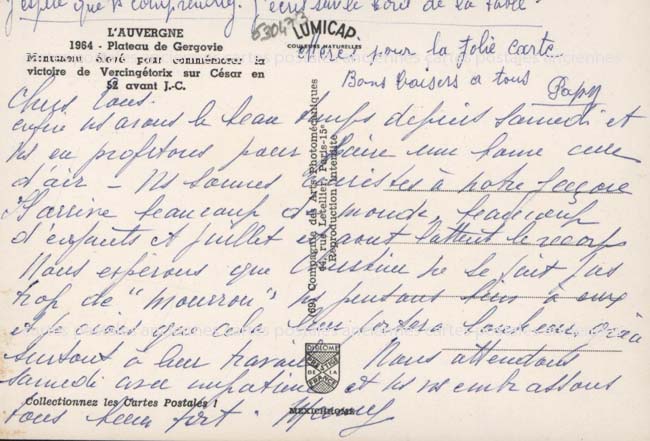 j'espère que vs comprendrez j'écris sur le bord de la table
5304773
LUMICAP
COULEURS NATURELLES
L'AUVERGNE
1964 - Plateau de Gergovie
Monument élevé pour commémorer la
victoire de Vercingétorix sur César en
52 avant J.-C.
Merci pour la jolie carte.
Bons baisers à tous
Papy
Chers tous.
enfin ns avons le beau temps depuis samedi et
ns en profitons pour faire une bonne cure
d'air - Ns sommes touristes à notre façon
Il arrive beaucoup de monde, beaucoup
d'enfants et juillet et août battent le record
Nous espérons que Christine ne se fait pas
trop de "mourron" ns pensons bien à eux
et que
surtout à leur travail Nous attendons
samedi avec impatience et ns vs embrassons
tous bien fort. Mamy
(69) Compagnie des Arts Photomécaniques
44, rue Letellier, Paris-15e
Reproduction interdite
DIPLOME
DE LA
FRANCE
Collectionnez les Cartes Postales !
MEXICHROME